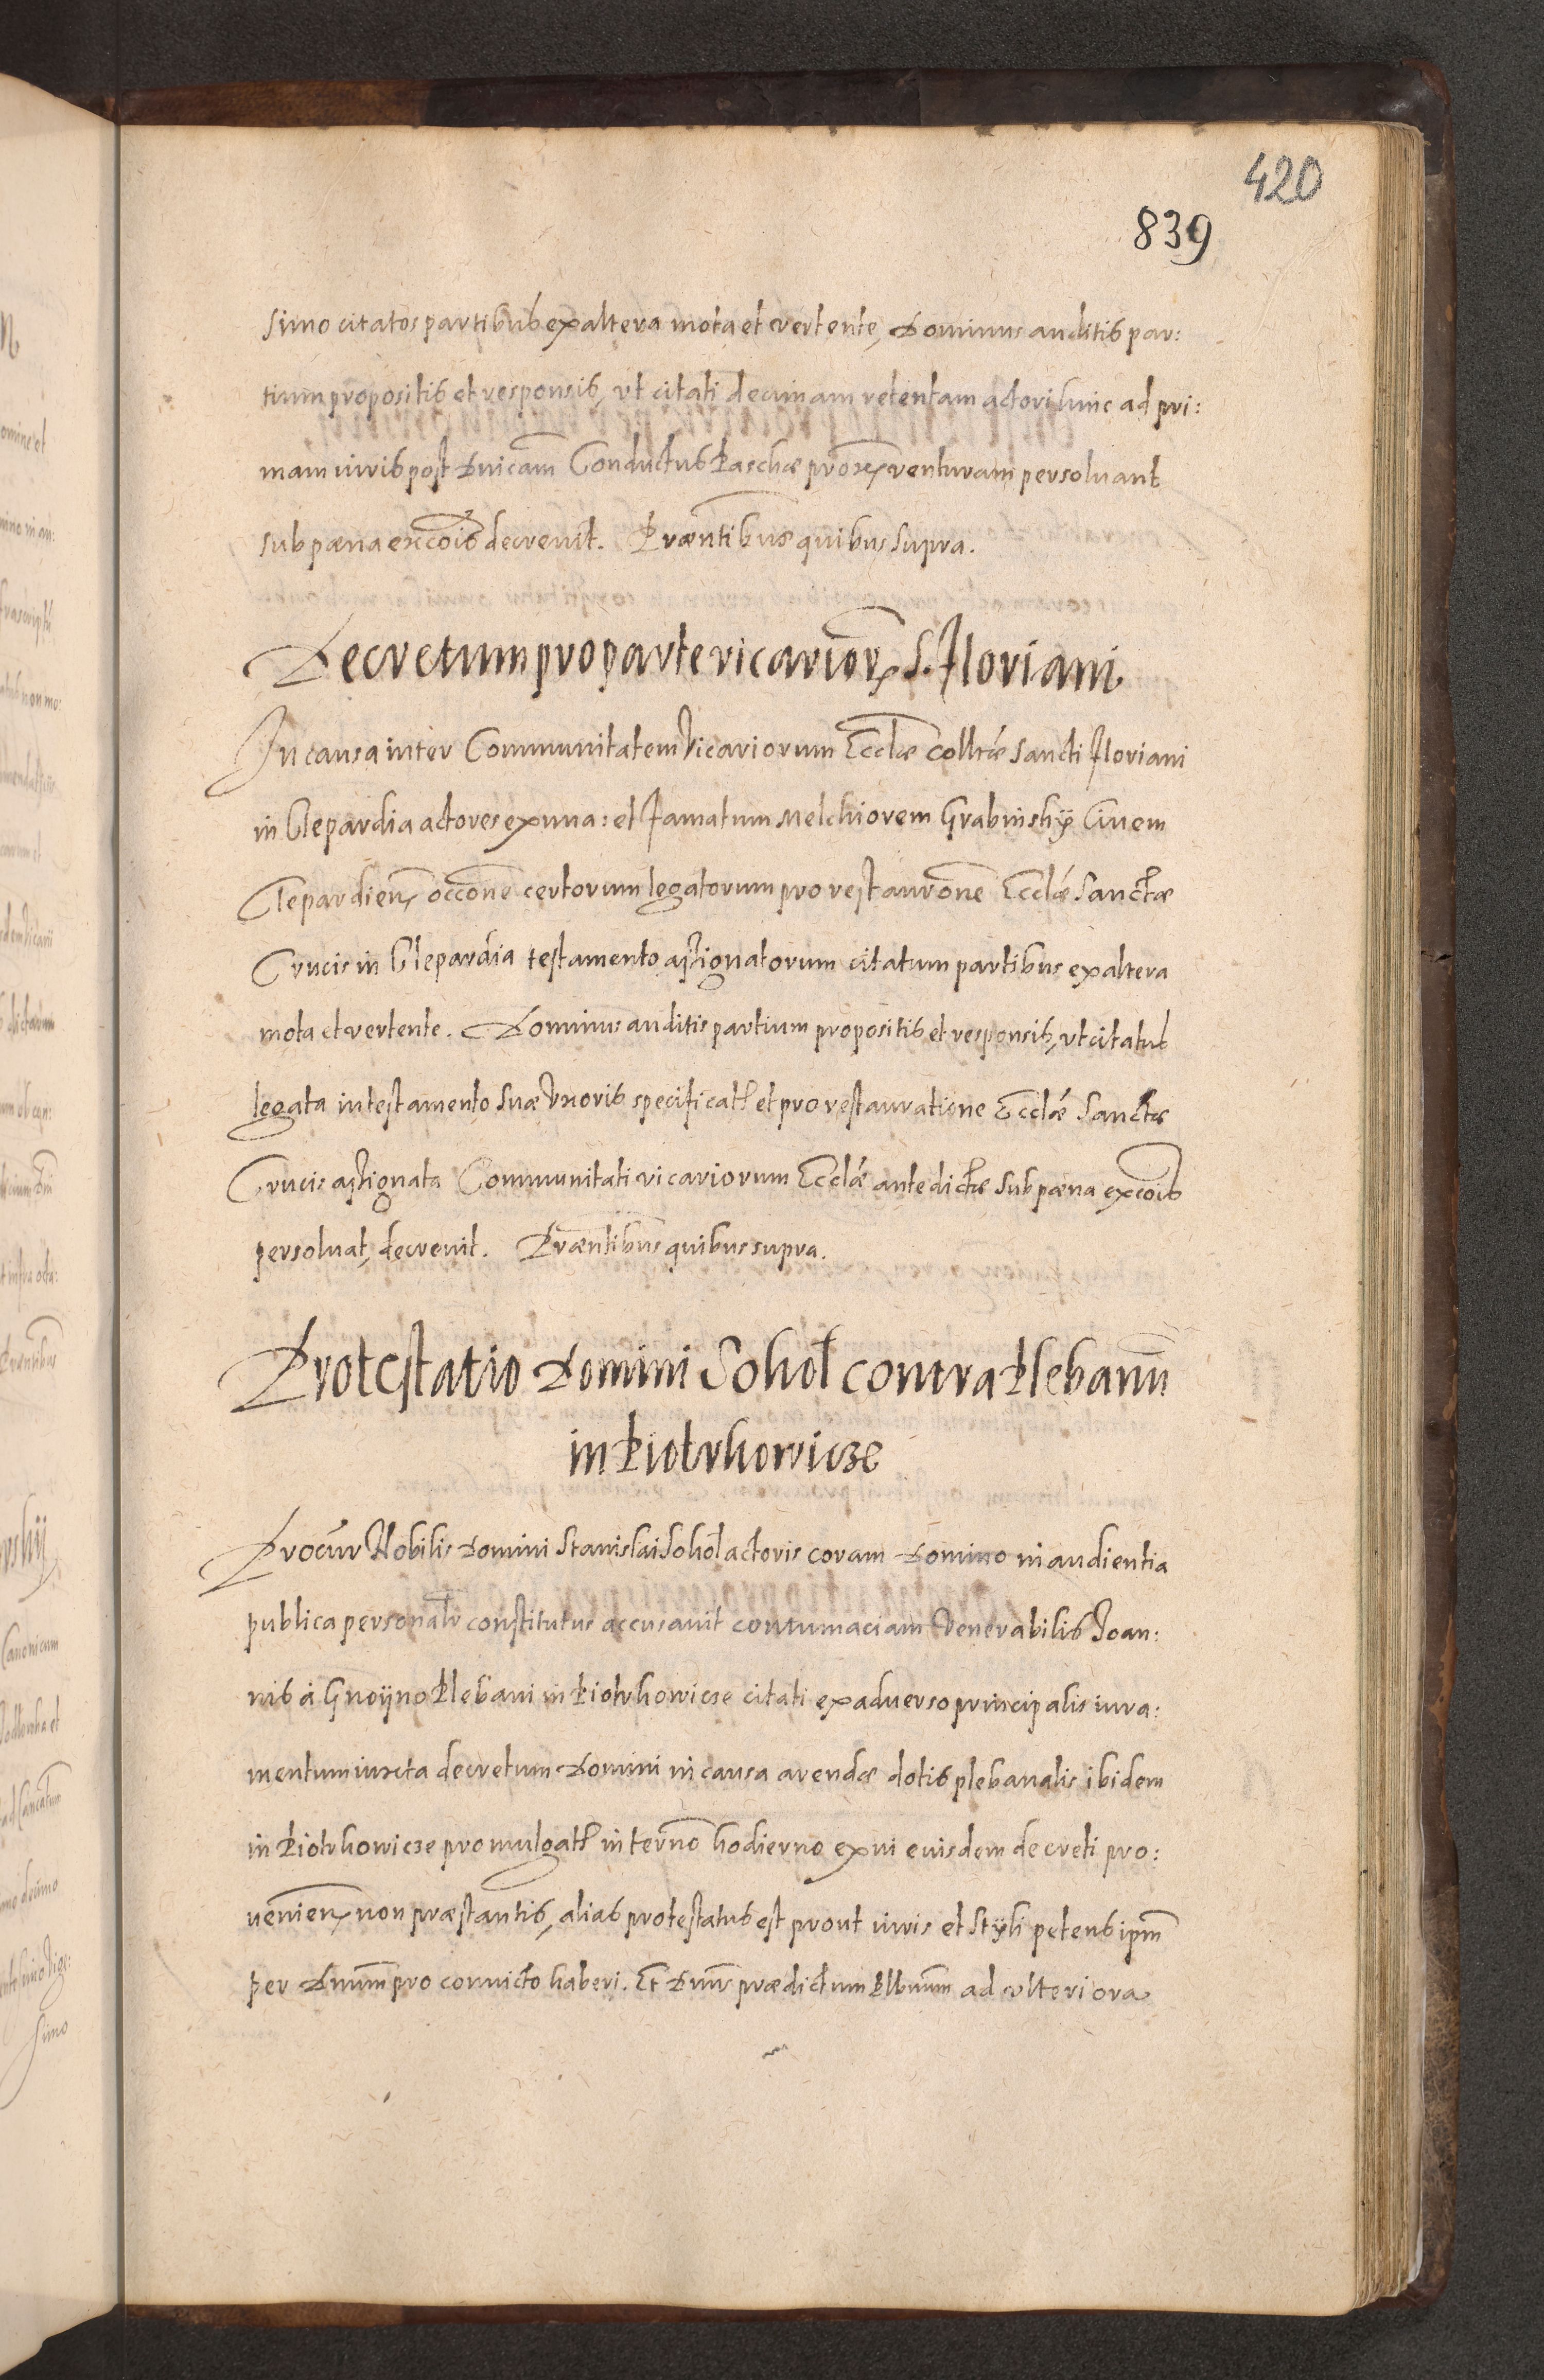 420
839
simo citatos partibus ex altera mota et vertente, Dominus auditis par:
tium propositis et responsis, vt citati decimam retentam actori huic ad pri:
mam iuris post Dnicam Conductus Paschæ prox. venturam persoluant
sub pæna exēcois decreuit. Præntibus quibus supra.
Decretum pro parte vicarior. S. Floriani
In causa inter Communitatem Vicariorum Ecclæ colltæ Sancti Floriani
in Clepardia actores ex vna: et famatum Melchiorem Grabinskÿ Ciuem
Clepardien. occone certorum legatorum pro restaurone Ecclæ Sanctæ
Crucis in Clepardia testamento assignatorum citatum partibus ex altera
mota et vertente. Dominus auditis partium propositis et responsis, vt citatus
legata in testamento suæ Vxoris specificata et pro restauratione Ecclæ Sanctæ
Crucis assignata Communitati vicariorum Ecclæ antedictæ sub pæna excois
persoluat, decreuit. Præntibus quibus supra.
Protestatio Domini Sokol contra Plebanū
in Piotrkowicze
Procur Nobilis Domini Stanislai Sokol actoris coram Domino in audientia
publica personalr constitutus accusauit contumaciam Venerabilis Joan:
nis à Gnoÿno Plebani in Piotrkowicze citati ex aduerso principalis iura:
mentum iuxta decretum Domini in causa arendæ dotis plebanalis ibidem
in Piotrkowicze promulgati in termo hodierno ex vi euisdem decreti pro:
uenien. non præstantis, alias protestatus est prout iuris et stÿli petens ipm
per Dnum pro conuicto haberi. Et Dnus prædictum Plbnum ad vlteriora